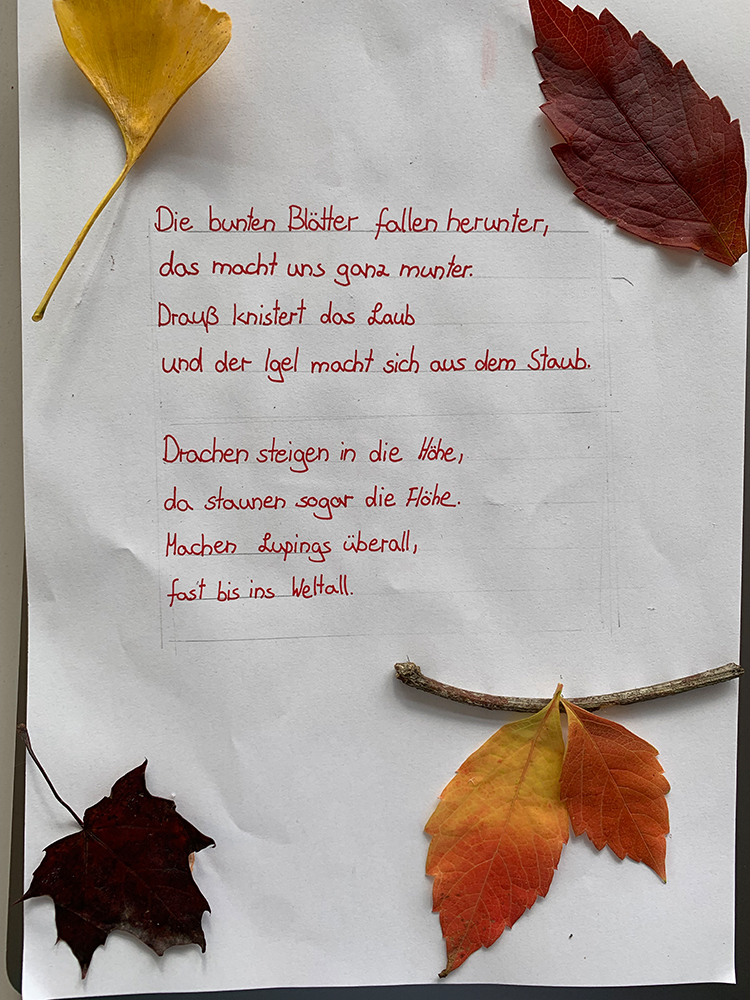 Die bunten Blätter fallen herunter,
das macht uns ganz munter.
Drauß knistert das Laub
und der Igel macht sich aus dem Staub.
Drachen steigen in die Höhe,
da staunen sogar die Flöhe.
Machen Lupings überall,
fast bis ins Weltall.